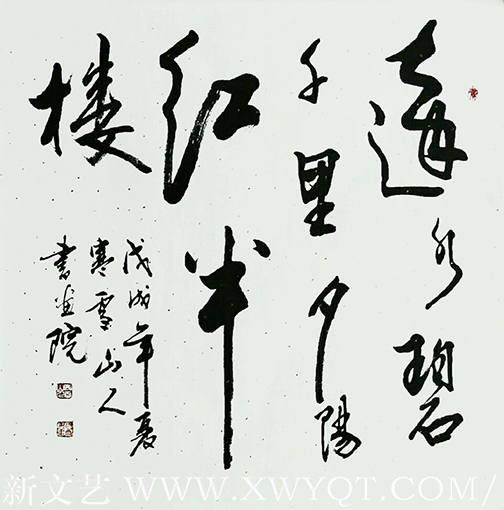 远水碧
千里夕陽
红半
楼
戊戌年夏
寒雪山人
书画院
新文艺 WWW.XWYQT.COM